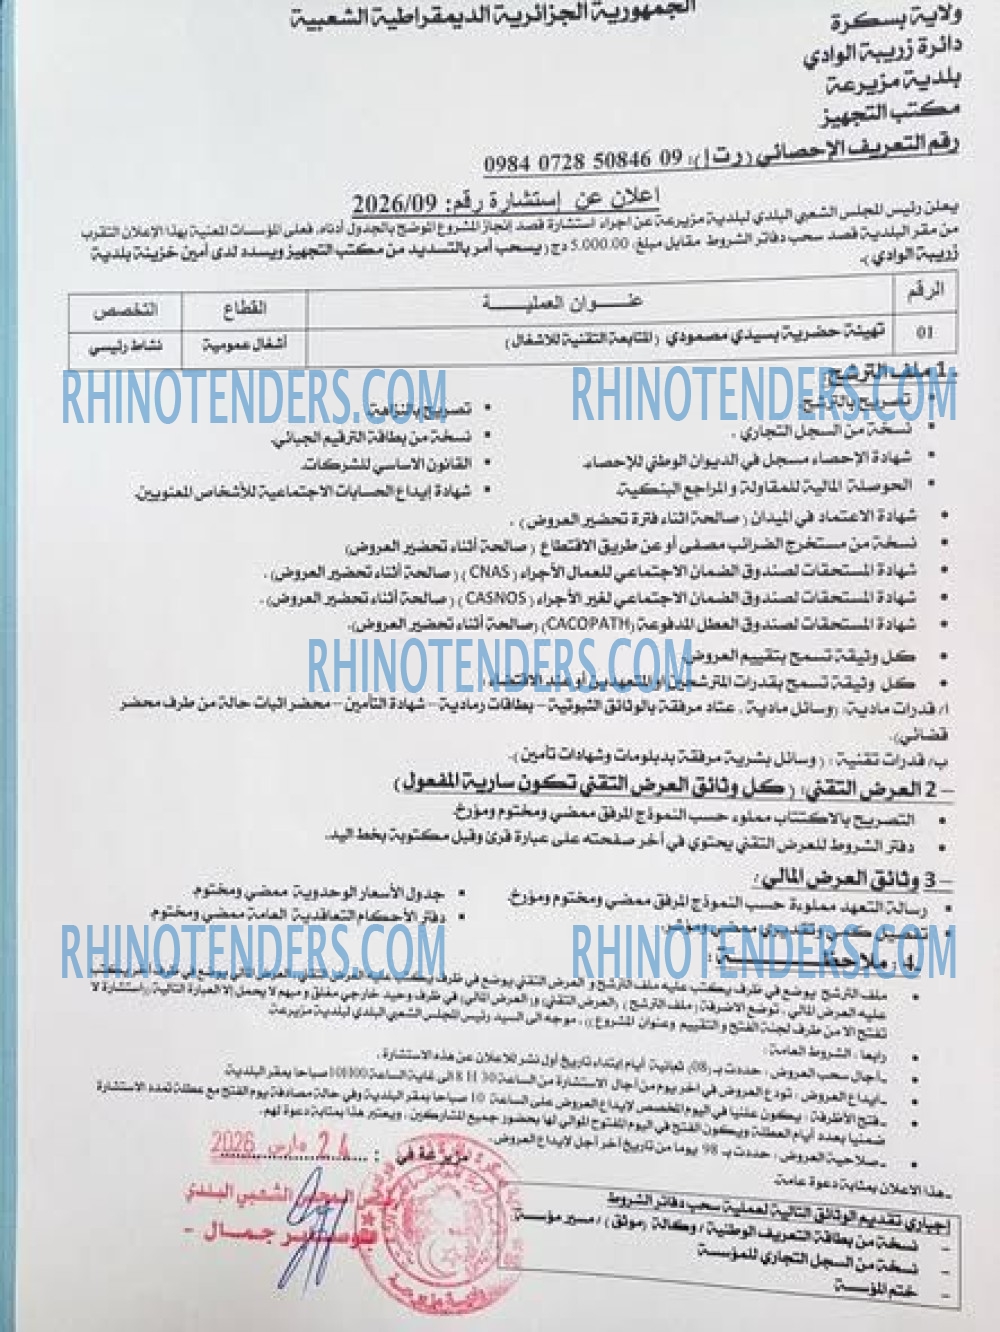 الجمهورية الجزائرية الديمقراطية الشعبية
ولاية بسكرة
دائرة زريبة الوادي
بلدية مزيرعة
مكتب التجهيز
رقم التعريف الإحصائي (رت إ): 09 50846 0728 0984
اعلان عن إستشارة رقم: 2026/09
يعلن رئيس المجلس الشعبي البلدي لبلدية مزيرعة عن اجراء استشارة قصد إنجاز المشروع الموضح بالجدول أدناه، فعلى المؤسسات المعنية بهذا الإعلان التقرب
من مقر البلدية قصد سحب دفاتر الشروط مقابل مبلغ: 5.000.00 دج (يسحب أمر بالتسديد من مكتب التجهيز ويسدد لدى أمين خزينة بلدية
زريبة الوادي).
الرقم عنـوان العمليـة القطاع التخصص
01 تهيئة حضرية بسيدي مصمودي (المتابعة التقنية للاشغال) أشغال عمومية نشاط رئيسي
1. ملف الترشح:
• تصريح بالترشح. • تصريح بالنزاهة.
• نسخة من السجل التجاري . • نسخة من بطاقة الترقيم الجبائي.
• شهادة الإحصاء مسجل في الديوان الوطني للإحصاء. • القانون الاساسي للشركات.
• الحوصلة المالية للمقاولة و المراجع البنكية. • شهادة إيداع الحسابات الاجتماعية للأشخاص المعنويين.
• شهادة الاعتماد في الميدان (صالحة اثناء فترة تحضير العروض) .
• نسخة من مستخرج الضرائب مصفى أو عن طريق الاقتطاع (صالحة أثناء تحضير العروض)
• شهادة المستحقات لصندوق الضمان الاجتماعي للعمال الأجراء (CNAS) (صالحة أثناء تحضير العروض).
• شهادة المستحقات لصندوق الضمان الاجتماعي لغير الأجراء (CASNOS) (صالحة أثناء تحضير العروض).
• شهادة المستحقات لصندوق العطل المدفوعة (CACOPATH) (صالحة أثناء تحضير العروض).
• كل وثيقة تسمح بتقييم العروض.
• كل وثيقة تسمح بقدرات المترشحين أو المتعهدين أو عند الاقتضاء :
ا/ قدرات مادية: (وسائل مادية . عتاد مرفقة بالوثائق الثبوتية – بطاقات رمادية – شهادة التأمين – محضر اثبات حالة من طرف محضر
قضائي).
ب/ قدرات تقنية : (وسائل بشرية مرفقة بدبلومات وشهادات تأمين).
2 – العرض التقني: (كل وثائق العرض التقني تكون سارية المفعول)
• التصريح بالاكتتاب مملوء حسب النموذج المرفق ممضي ومختوم ومؤرخ.
• دفتر الشروط للعرض التقني يحتوي في أخر صفحته على عبارة قرئ وقبل مكتوبة بخط اليد.
3 – وثائق العرض المالي:
• رسالة التعهد مملوءة حسب النموذج المرفق ممضي ومختوم ومؤرخ. • جدول الأسعار الوحدوية ممضي ومختوم.
• تفصيل كمي وتقديري ممضي ومؤشر. • دفتر الأحكام التعاقدية العامة ممضي ومختوم.
4. ملاحظـــة :
• ملف الترشح يوضع في ظرف يكتب عليه ملف الترشح و العرض التقني يوضع في ظرف يكتب عليه العرض التقني، العرض المالي يوضع في ظرف أخر يكتب
عليه العرض المالي . توضع الاضرفة (ملف الترشح) (العرض التقني) و(العرض المالي) في ظرف وحيد خارجي مغلق و مبهم لا يحمل إلا العبارة التالية ((استشارة لا
تفتح الا من طرف لجنة الفتح و التقييم وعنوان المشروع)) . موجه الى السيد رئيس المجلس الشعبي البلدي لبلدية مزيرعة
• رابعا : الشروط العامة :
• ـ أجال سحب العروض : حددت بـ (08) ثمانية أيام إبتداء تاريخ أول نشر للاعلان عن هذه الاستشارة .
• ـ ايداع العروض : تودع العروض في اخر يوم من أجال الاستشارة من الساعة 30 H 8 الى غاية الساعة 10H00 صباحا بمقر البلدية.
• ـ فتح الأظرفة : يكون علنيا في اليوم المخصص لإيداع العروض على الساعة 10 صباحا بمقر البلدية وفي حالة مصادفة يوم الفتح مع عطلة تمدد الاستشارة
ضمنيا بعدد أيام العطلة ويكون الفتح في اليوم المفتوح الموالي لها بحضور جميع المشاركين . ويعتبر هذا بمثابة دعوة لهم.
• ـ صلاحية العروض : حددت بـ 98 يوما من تاريخ آخر أجل لايداع العروض.
ـ هذا الاعلان بمثابة دعوة عامة.
مزيرعة في : 24 مارس 2026
المجلس الشعبي البلدي
جمال -
إجباري تقديم الوثائق التالية لعملية سحب دفاتر الشروط
– نسخة من بطاقة التعريف الوطنية / وكالة (موثق) / مسير مؤسسة
– نسخة من السجل التجاري للمؤسسة
– ختم المؤسسة
RHINOTENDERS.COM
RHINOTENDERS.COM
RHINOTENDERS.COM
RHINOTENDERS.COM
RHINOTENDERS.COM